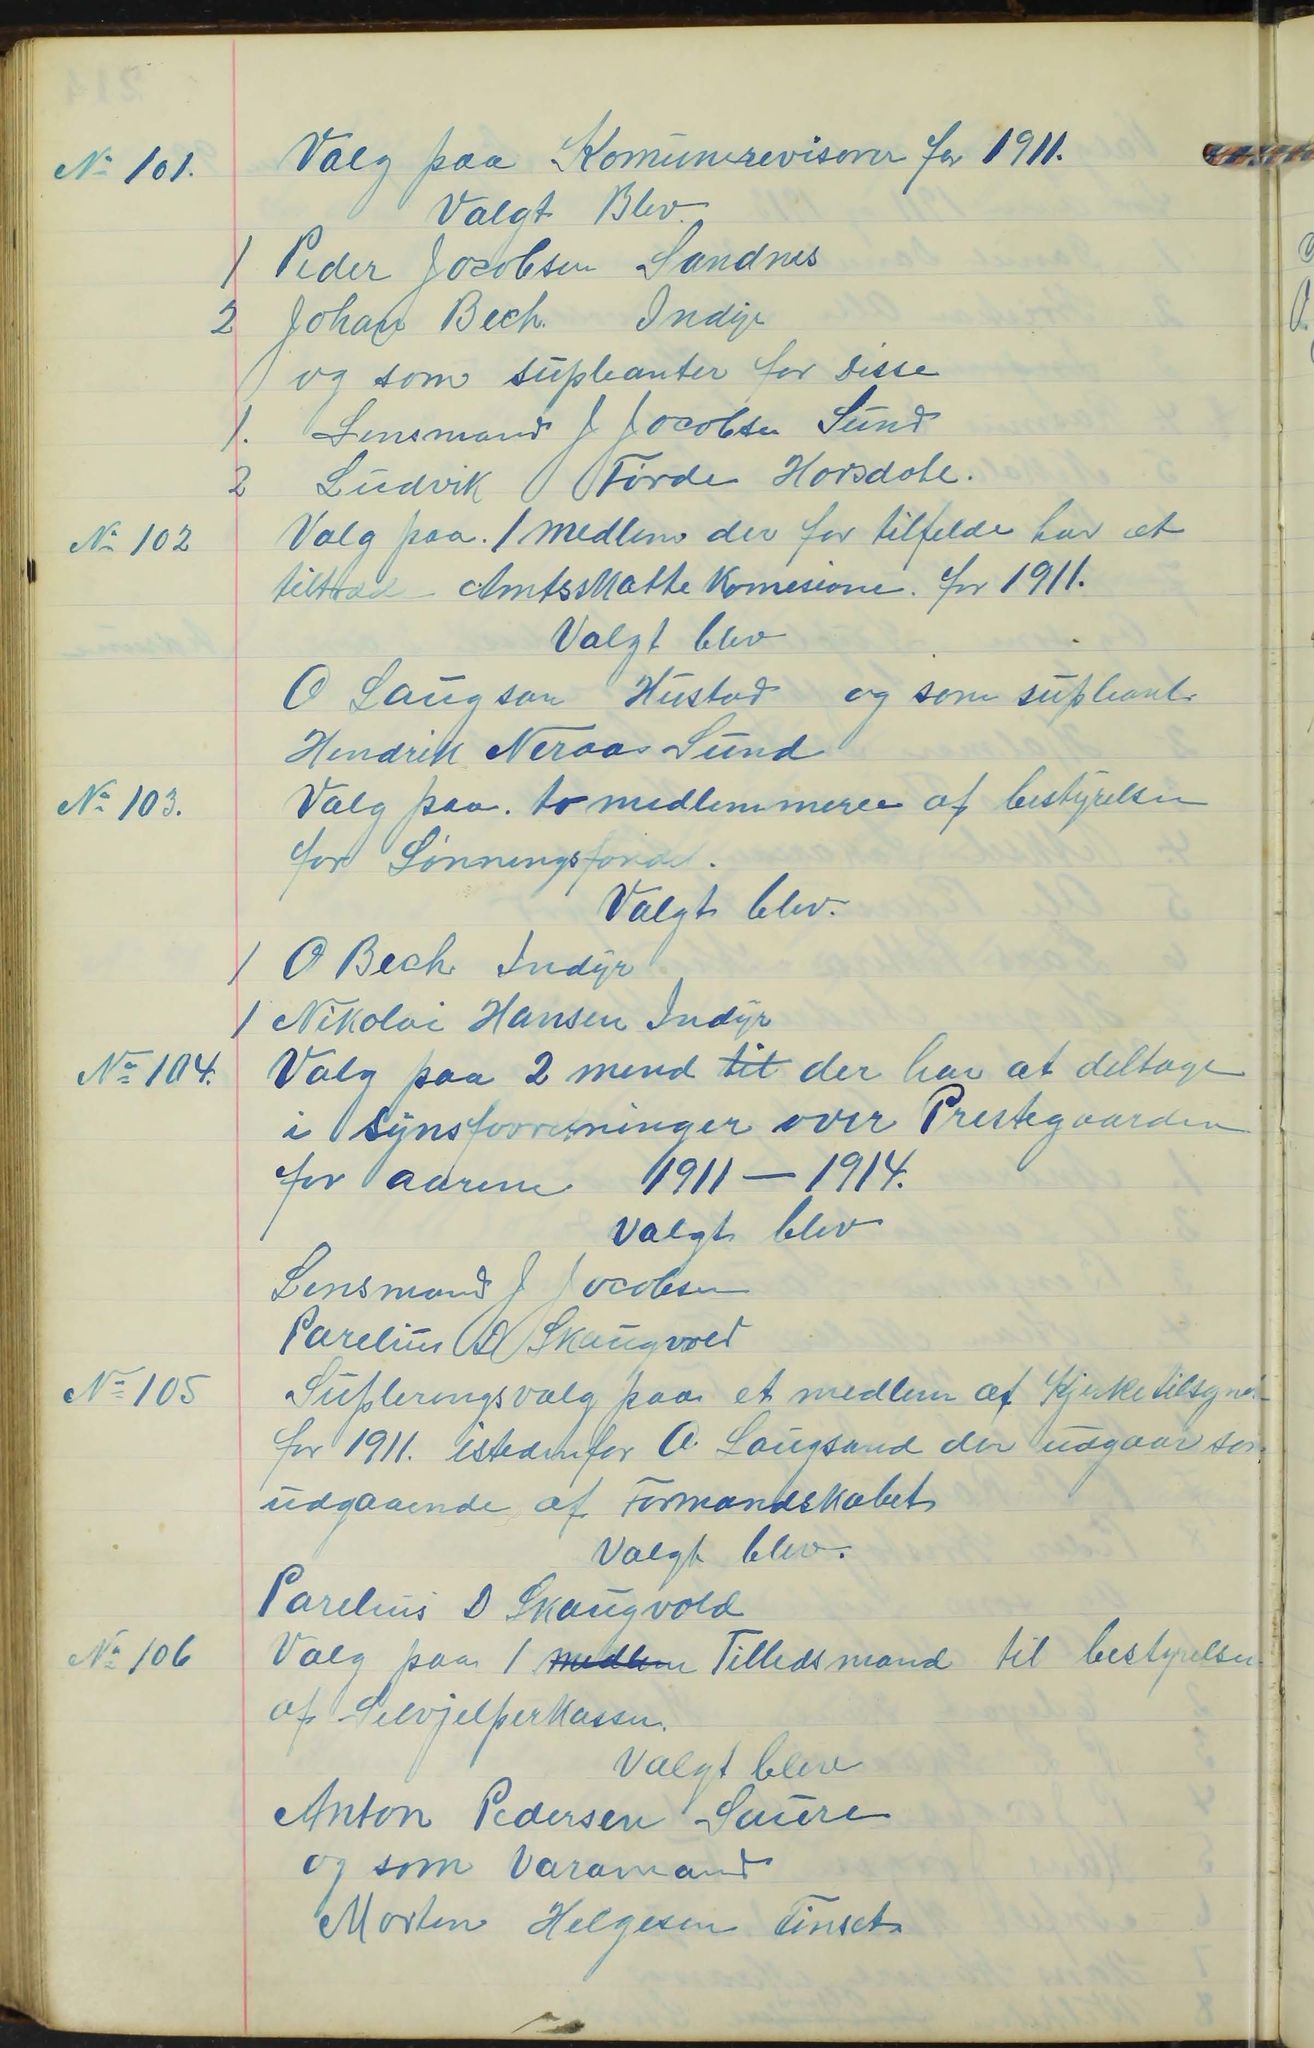 No 101. Valg paa Komunerevisorer for 1911.
Valgt Blev
1 Peder Jocobsen Sandnes
2 Johan Bech. Indÿr
og som supleanter for Disse
1. Lensmand J Jocobsen Sund
2 Ludvik Förde Horsdale.
No 102 Valg paa. 1 medlem der for tilfelde har at
tiltræd Amtsskatte Komesione. for 1911.
Valgt blev
O Laugsan Hustad og som supleant
Hendrik Neraas Sund
No 103. Valg paa. to medlemmere af bestÿrelsen
for Lönningsfondet.
Valgt blev.
1 O Bech Indÿr
1 Nikolai Hansen Indÿr
No 104. Valg paa 2 mend til der har at deltage
i Sÿnsforretninger over Prestegaarden
for aarene 1911 — 1914.
Valgt blev
Lensmand J Jocobsen
Parelius D Skaugvold
No 105 Supleringsvalg paa et medlem af Kjerketilsynet
for 1911. istedenfor O. Laugsand der udgaar som
udgaaende af Formandskabet
Valgt blev.
Parelius D Skaugvold
No 106 Valg paa 1 medlem Tilledsmand til bestyrelsen
af Selvjelperkassen.
Valgt blev
Anton Pedersen Saure
og som Varamand
Morten Helgesen Finset